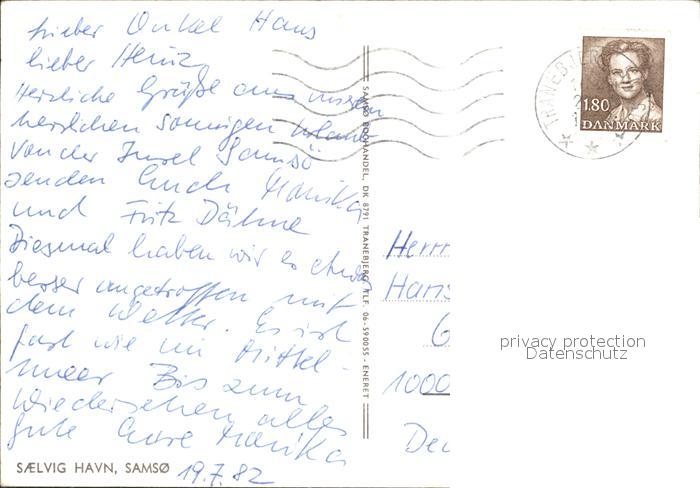 Lieber Onkel Hans
lieber Heinz,
Herzliche Grüße aus unserem
herrlichen sonnigen Urlaub
von der Insel Samsö
senden Euch Marika
und Fritz Dähne
Diesmal haben wir es etwas
besser angetroffen mit
dem Wetter. Es ist
fast wie im Mittel-
meer Bis zum
Wiedersehen alles
gute Eure Marika
SÆLVIG HAVN, SAMSØ 19.7.82
SAMSØ BOGHANDEL, DK 8791 TRANEBJERG, TLF. 06-590055 - ENERET
TRANEBJE
1.80
DANMARK
Herrn
Hans
1000
privacy protection
Datenschutz